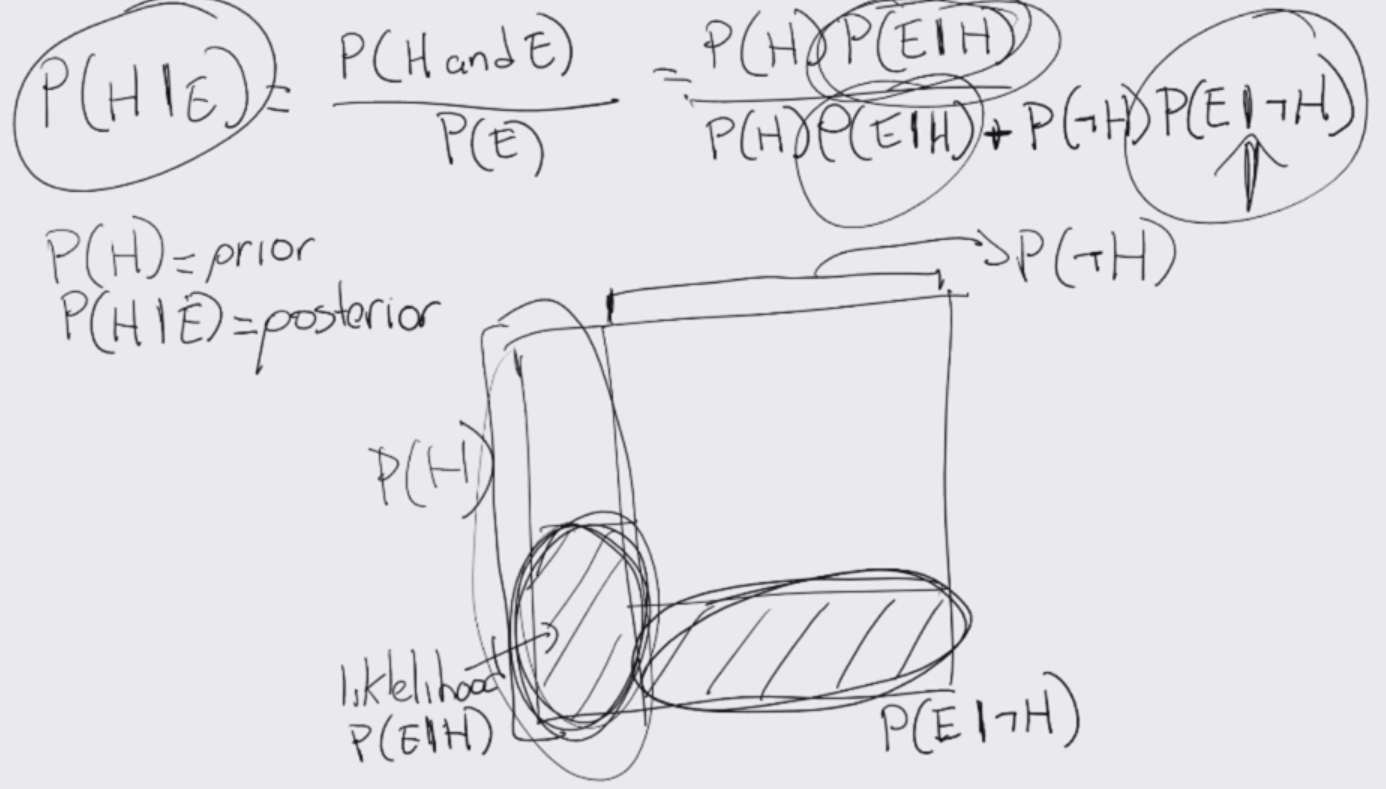 P(H|E) = P(H and E) / P(E) = P(H) P(E|H) / P(H) P(E|H) + P(¬H) P(E|¬H)
P(H) = prior
P(H|E) = posterior
P(¬H)
P(H)
liklelihood
P(E|H)
P(E|¬H)